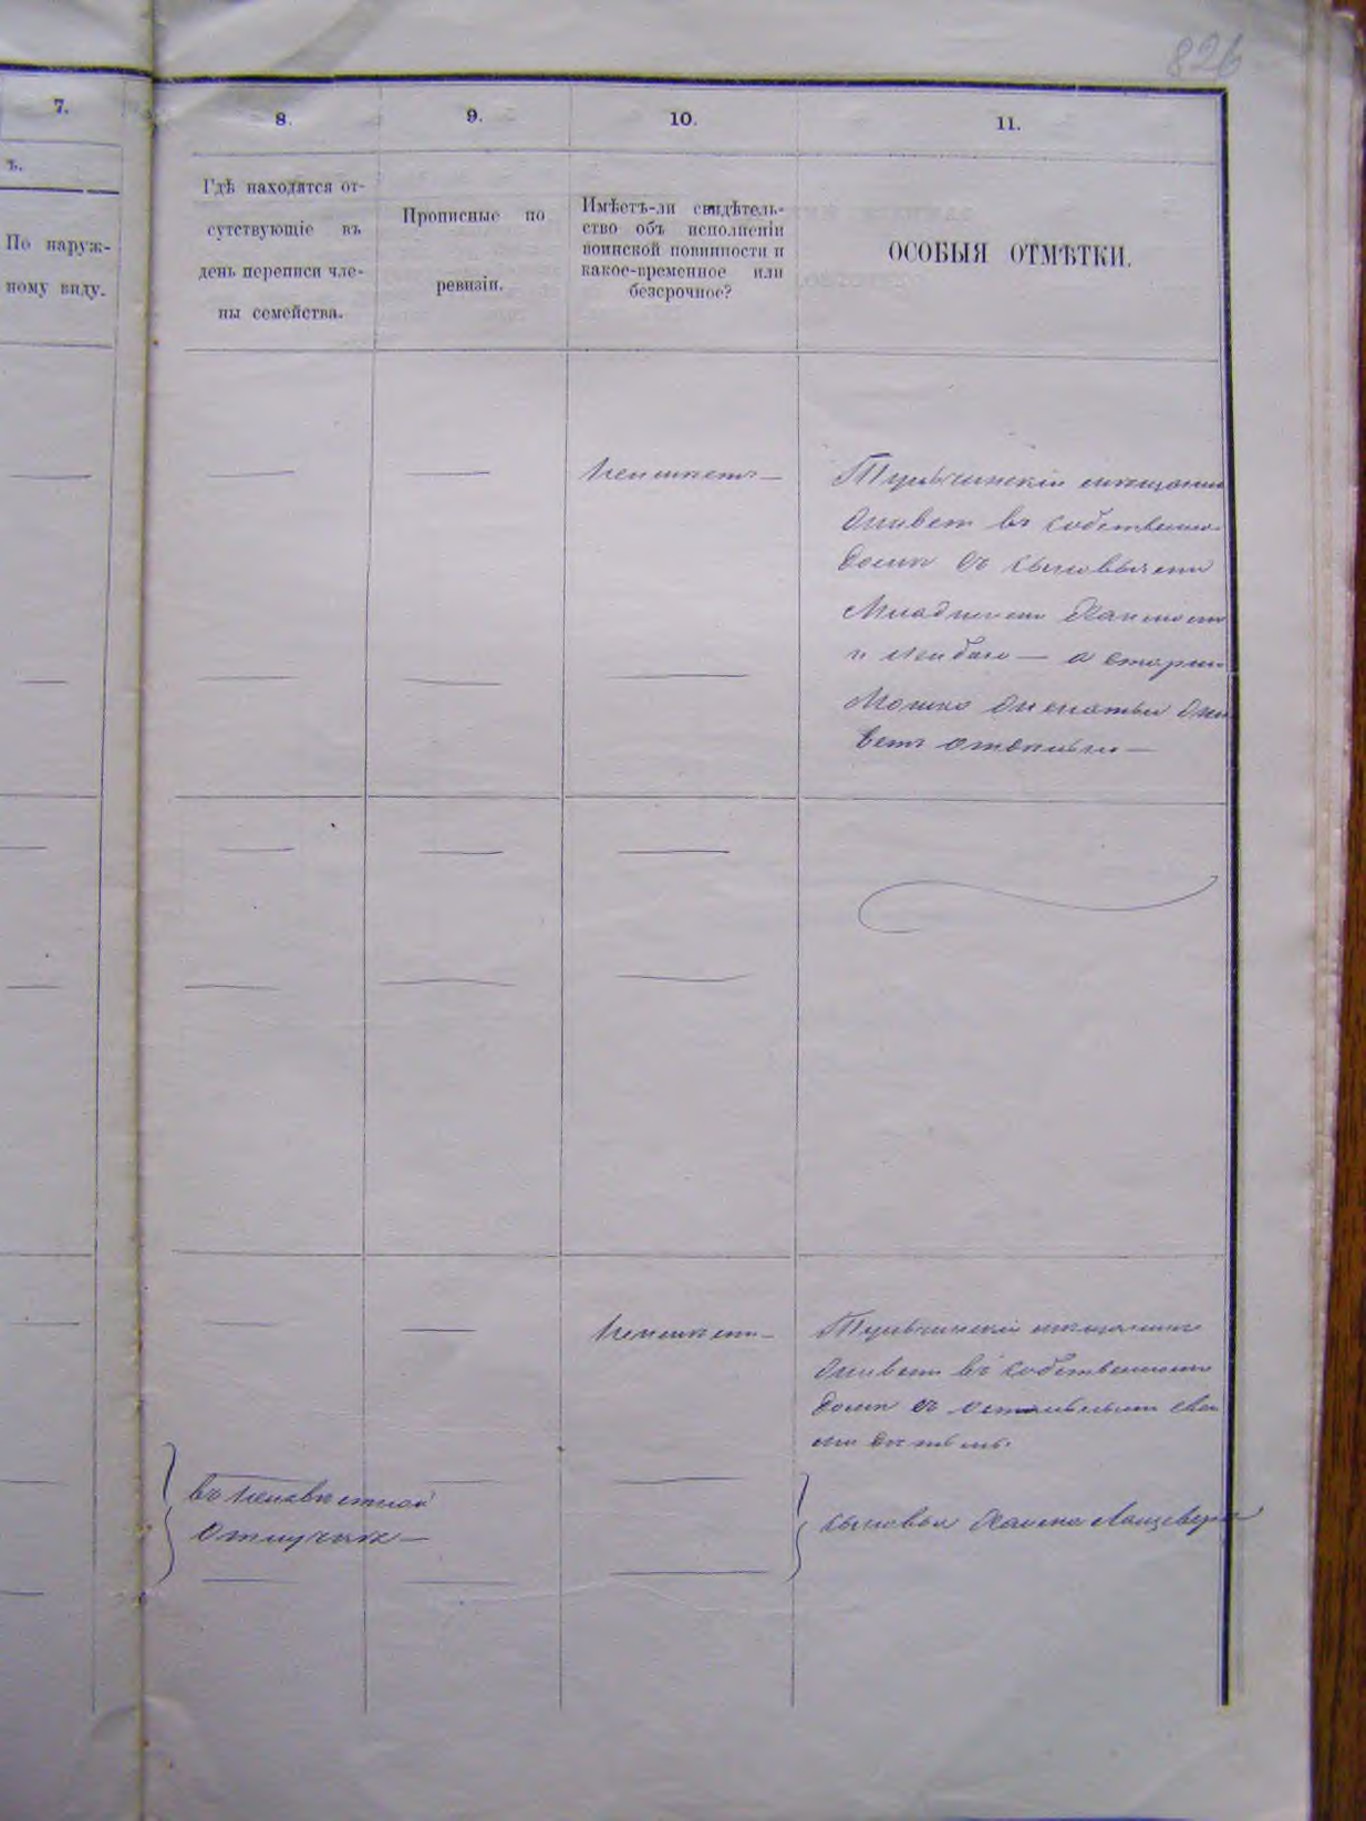 826
7.
8.
9.
10.
11.
ъ.
По наруж-
ному виду.
Гдѣ находятся от-
сутствующіе въ
день переписи чле-
ны семейства.
Прописные по
ревизіи.
Имѣетъ-ли свидѣтель-
ство объ исполненіи
воинской повинности и
какое-временное или
безсрочное?
ОСОБЫЯ ОТМѢТКИ.
Неимѣетъ —
Тульчинскій мѣщанин
живет въ собственно
домѣ съ сыновьями
и Лейбою — а старш
Мошко женатый жи
ветъ отдѣльно —
Неимѣетъ —
Тульчинскій мѣщанин
живет въ собственном
домѣ съ остальными сво
ими дѣтьми.
въ неизвѣстной
отлучкѣ —
сыновья Хаима